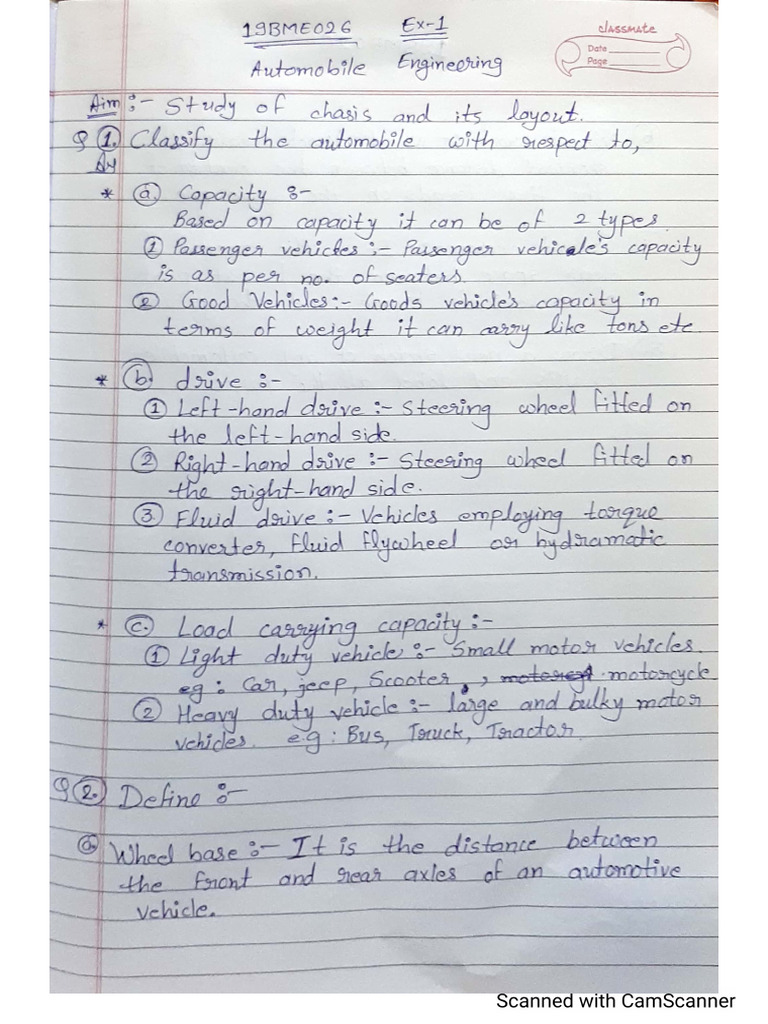 19BME026 Ex-1
classmate
Date
Page
Automobile Engineering
Aim :- Study of chasis and its layout.
Q 1. Classify the automobile with respect to,
* a. Capacity :-
Based on capacity it can be of 2 types.
1 Passenger vehicles :- Passenger vehicle's capacity
is as per no. of seaters.
2 Good Vehicles :- Goods vehicle's capacity in
terms of weight it can carry like tons etc.
* b. drive :-
1 Left-hand drive :- Steering wheel fitted on
the left-hand side.
2 Right-hand drive :- Steering wheel fitted on
the right-hand side.
3 Fluid drive :- Vehicles employing torque
converter, fluid flywheel or hydramatic
transmission.
* c. Load carrying capacity :-
1 Light duty vehicle :- Small motor vehicles.
eg : Car, jeep, Scooter, motorcycle
2 Heavy duty vehicle :- large and bulky motor
vehicles. e.g : Bus, Truck, Tractor.
Q 2. Define :-
a. Wheel base :- It is the distance between
the front and rear axles of an automotive
vehicle.
Scanned with CamScanner